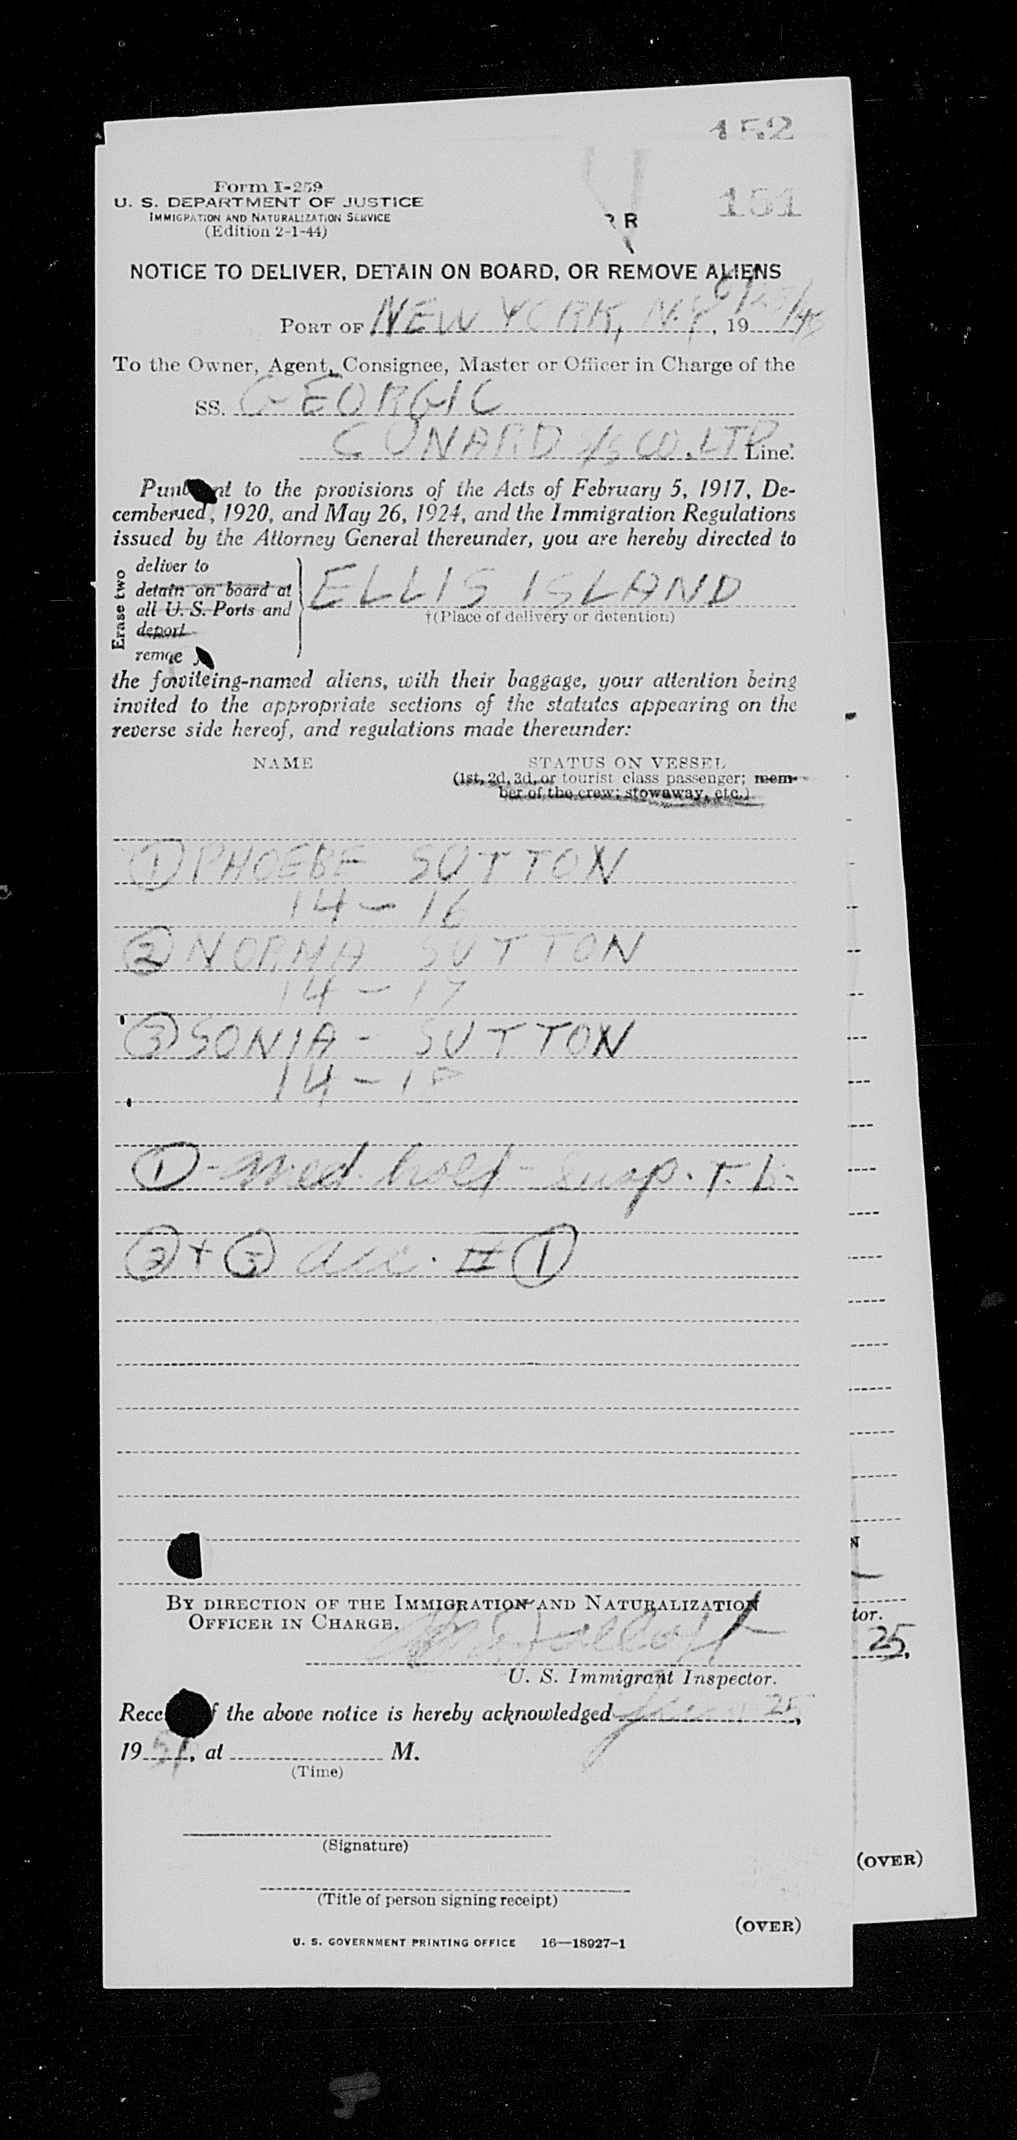 152
151
Form I-259
U. S. DEPARTMENT OF JUSTICE
IMMIGRATION AND NATURALIZATION SERVICE
(Edition 2-1-44)
R
NOTICE TO DELIVER, DETAIN ON BOARD, OR REMOVE ALIENS
PORT OF NEW YORK, N.Y, 19
To the Owner, Agent, Consignee, Master or Officer in Charge of the
SS. GEORGIC
CUNARD S/S CO. LTD Line:
to the provisions of the Acts of February 5, 1917, De-
, 1920, and May 26, 1924, and the Immigration Regulations
issued by the Attorney General thereunder, you are hereby directed to
Erase two
deliver to
detain on board at
all U. S. Ports and
deport
ELLIS ISLAND
†(Place of delivery or detention)
the aliens, with their baggage, your attention being
invited to the appropriate sections of the statutes appearing on the
reverse side hereof, and regulations made thereunder:
NAME STATUS ON VESSEL
(1st, 2d, 3d, or tourist class passenger; mem-
ber of the crew; stowaway, etc.)
① PHOEBE SUTTON
14 - 16
② NORMA SUTTON
14 - 17
③ SONIA - SUTTON
14 -
① - med. hold - susp. T. b.
② + ③ acc. # ①
BY DIRECTION OF THE IMMIGRATION AND NATURALIZATION
OFFICER IN CHARGE.
U. S. Immigrant Inspector.
tor.
25,
the above notice is hereby acknowledged June 25,
19, at M.
(Time)
(Signature)
(OVER)
(Title of person signing receipt)
(OVER)
U. S. GOVERNMENT PRINTING OFFICE 16—18927-1